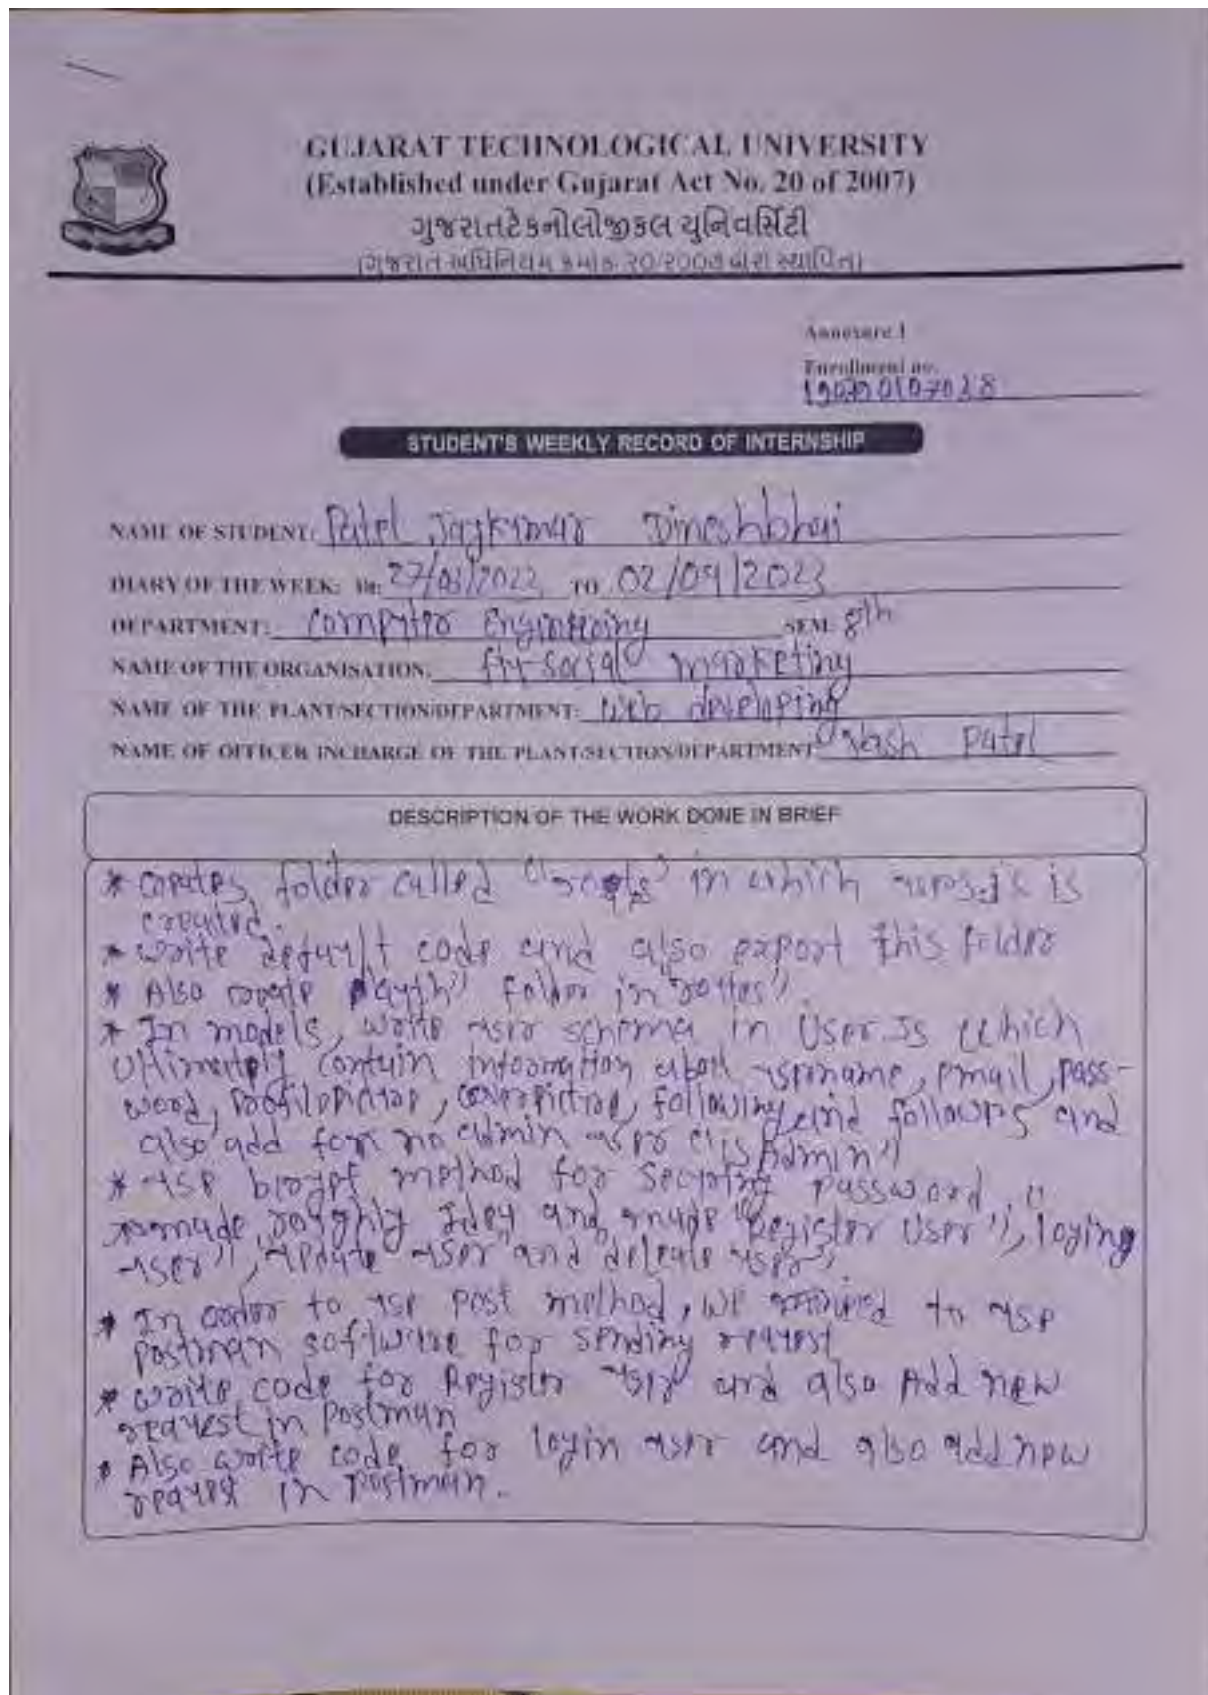 GUJARAT TECHNOLOGICAL UNIVERSITY
(Established under Gujarat Act No. 20 of 2007)
ગુજરાતટેકનોલોજીકલ યુનિવર્સિટી
(ગુજરાત અધિનિયમ ક્રમાંક: ૨૦/૨૦૦૭ દ્વારા સ્થાપિત)
Annexure 1
Enrollment no.
STUDENT'S WEEKLY RECORD OF INTERNSHIP
NAME OF STUDENT: Patel Jaykumar Dineshbhai
DIARY OF THE WEEK: TO 02/04/2023
DEPARTMENT: Computer Engineering SEM 8th
NAME OF THE ORGANISATION: social marketing
NAME OF THE PLANT/SECTION/DEPARTMENT: Web developing
NAME OF OFFICER INCHARGE OF THE PLANT/SECTION/DEPARTMENT Yash Patel
DESCRIPTION OF THE WORK DONE IN BRIEF
* creates folder called in which users.js is
created.
* write default code and also export this folder
* Also create auth" folder in "routes"
* In models, write user schema in User.Js which
ultimately contain information about username, email, pass-
word, profilepicture, coverpicture, following and follows and
also add for no admin user "isAdmin"
* use bcrypt method for securing password
made roughly Idey and made "Register User", loging
user", "update user" and deleate user"
* In order to use post method, we to use
postman software for sending request
* write code for Register user and also Add new
request in Postman
* Also write code for login user and also add new
request in Postman.